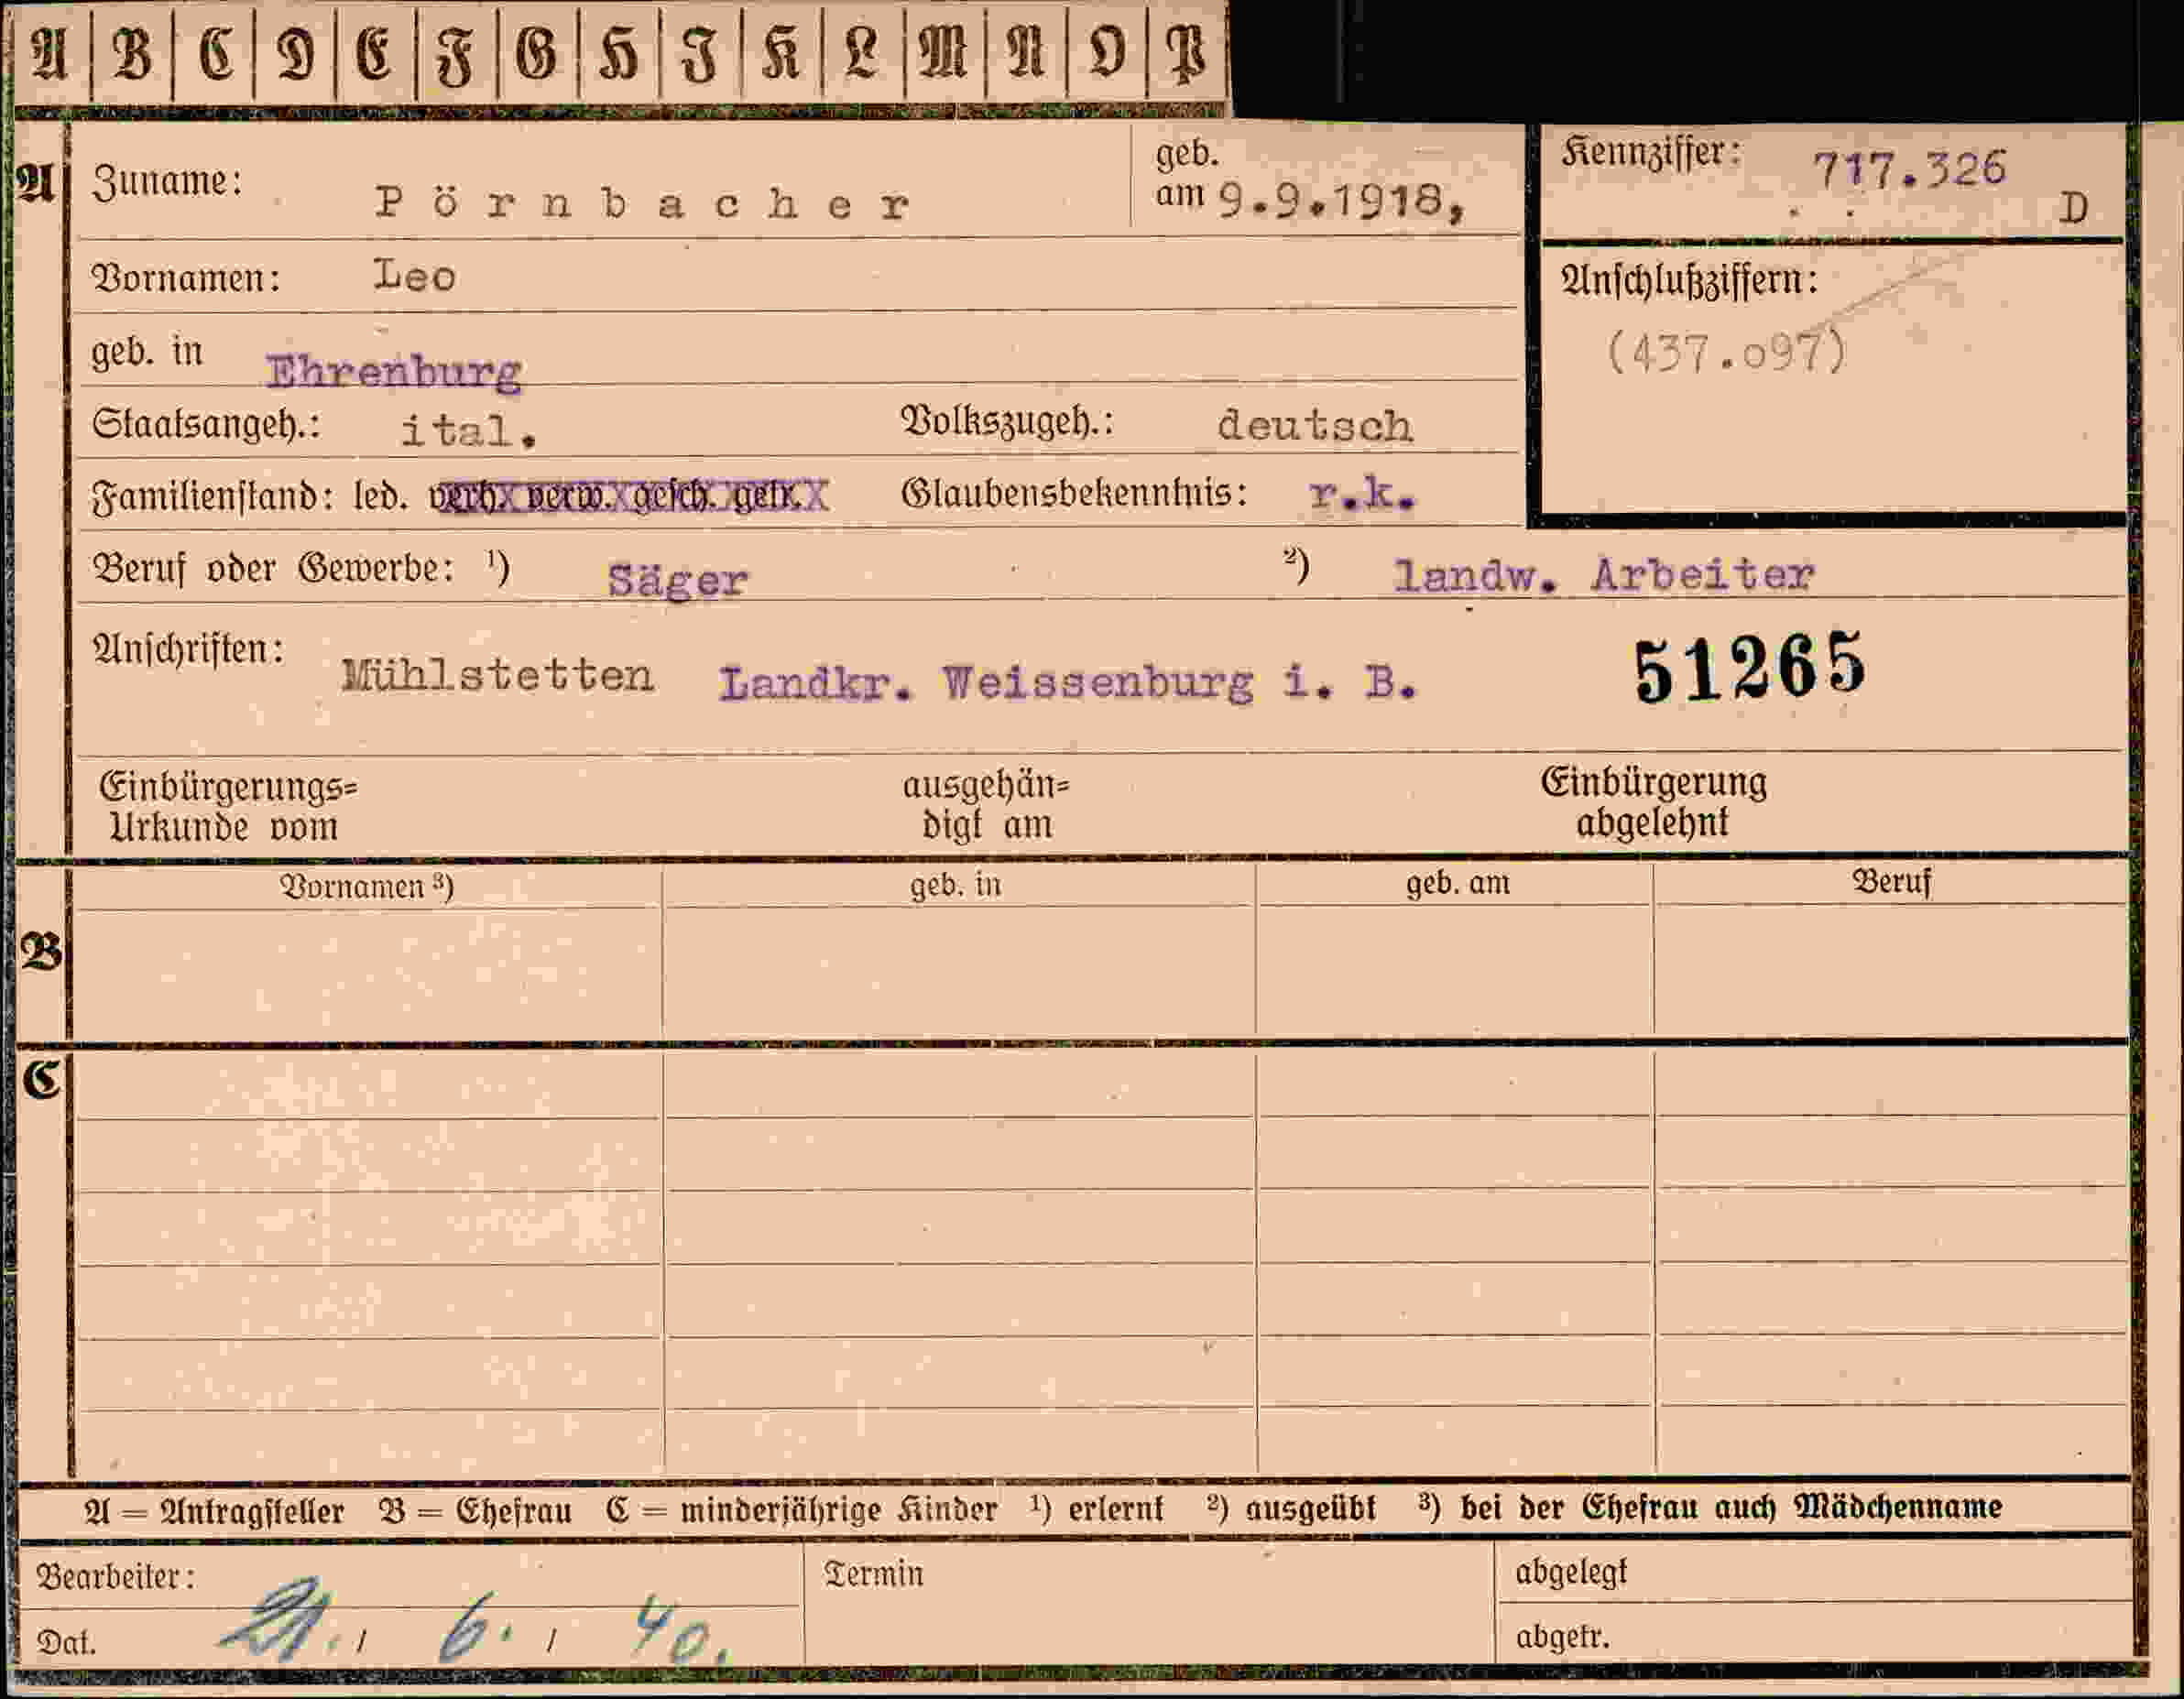 A B C D E F G H J K L M N O P
A Zuname: Pörnbacher geb. am 9.9.1918, Kennziffer: 717.326 D
Vornamen: Leo Anschlußziffern:
geb. in Ehrenburg (437.o97)
Staatsangeh.: ital. Volkszugeh.: deutsch
Familienstand: led. verh. verw. gesch. getr. Glaubensbekenntnis: r.k.
Beruf oder Gewerbe: ¹) Säger ²) landw. Arbeiter
Anschriften: Mühlstetten Landkr. Weissenburg i. B. 51265
Einbürgerungs= ausgehän= Einbürgerung
Urkunde vom digt am abgelehnt
Vornamen ³) geb. in geb. am Beruf
B
C
A = Antragsteller B = Ehefrau C = minderjährige Kinder ¹) erlernt ²) ausgeübt ³) bei der Ehefrau auch Mädchenname
Bearbeiter: Termin abgelegt
Dat. 21. / 6. / 40. abgetr.